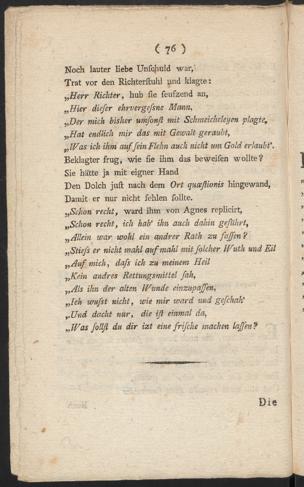 ( 76 )
Noch lauter liebe Unſchuld war,
Trat vor den Richterſtuhl und klagte:
„Herr Richter, hub ſie ſeufzend an,
„Hier dieſer ehrvergeſsne Mann,
„Der mich bisher umſonſt mit Schmeicheleyen plagte,
„Hat endlich mir das mit Gewalt geraubt,
„Was ich ihm auf ſein Flehn auch nicht um Gold erlaubt‘.
Beklagter frug, wie ſie ihm das beweiſen wollte?
Sie hätte ja mit eigner Hand
Den Dolch juſt nach dem Ort quæſtionis hingewand,
Damit er nur nicht fehlen ſollte.
„Schon recht, ward ihm von Agnes replicirt,
„Schon recht, ich hab' ihn auch dahin geführt,
„Allein war wohl ein andrer Rath zu faſſen?
„Stieſs er nicht mahl auf mahl mit ſolcher Wuth und Eil
„Auf mich, daſs ich zu meinem Heil
„Kein andres Rettungsmittel ſah,
„Als ihn der alten Wunde einzupaſſen,
„Ich wuſst nicht, wie mir ward und geſchah
„Und dacht nur, die iſt einmal da,
„Was ſollſt du dir izt eine friſche machen laſſen?
Die